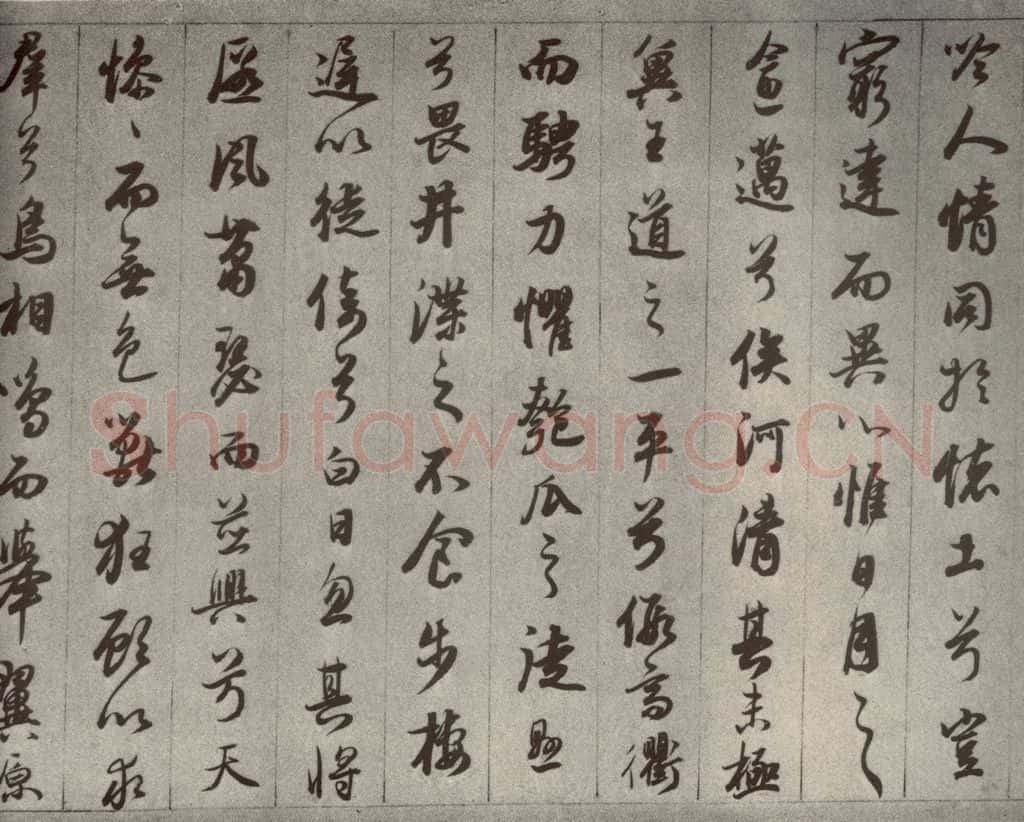 吟人情同於懷土兮豈
窮達而異心惟日月之
愈邁兮俟河清其未極
冀王道之一平兮假高衢
而騁力懼匏瓜之徒懸
兮畏井渫之不食步棲
遲以徙倚兮白日忽其將
匿風蕭瑟而並興兮天
慘〻而無色獸狂顧以求
羣兮鳥相鳴而舉翼原
Shufawang.CN